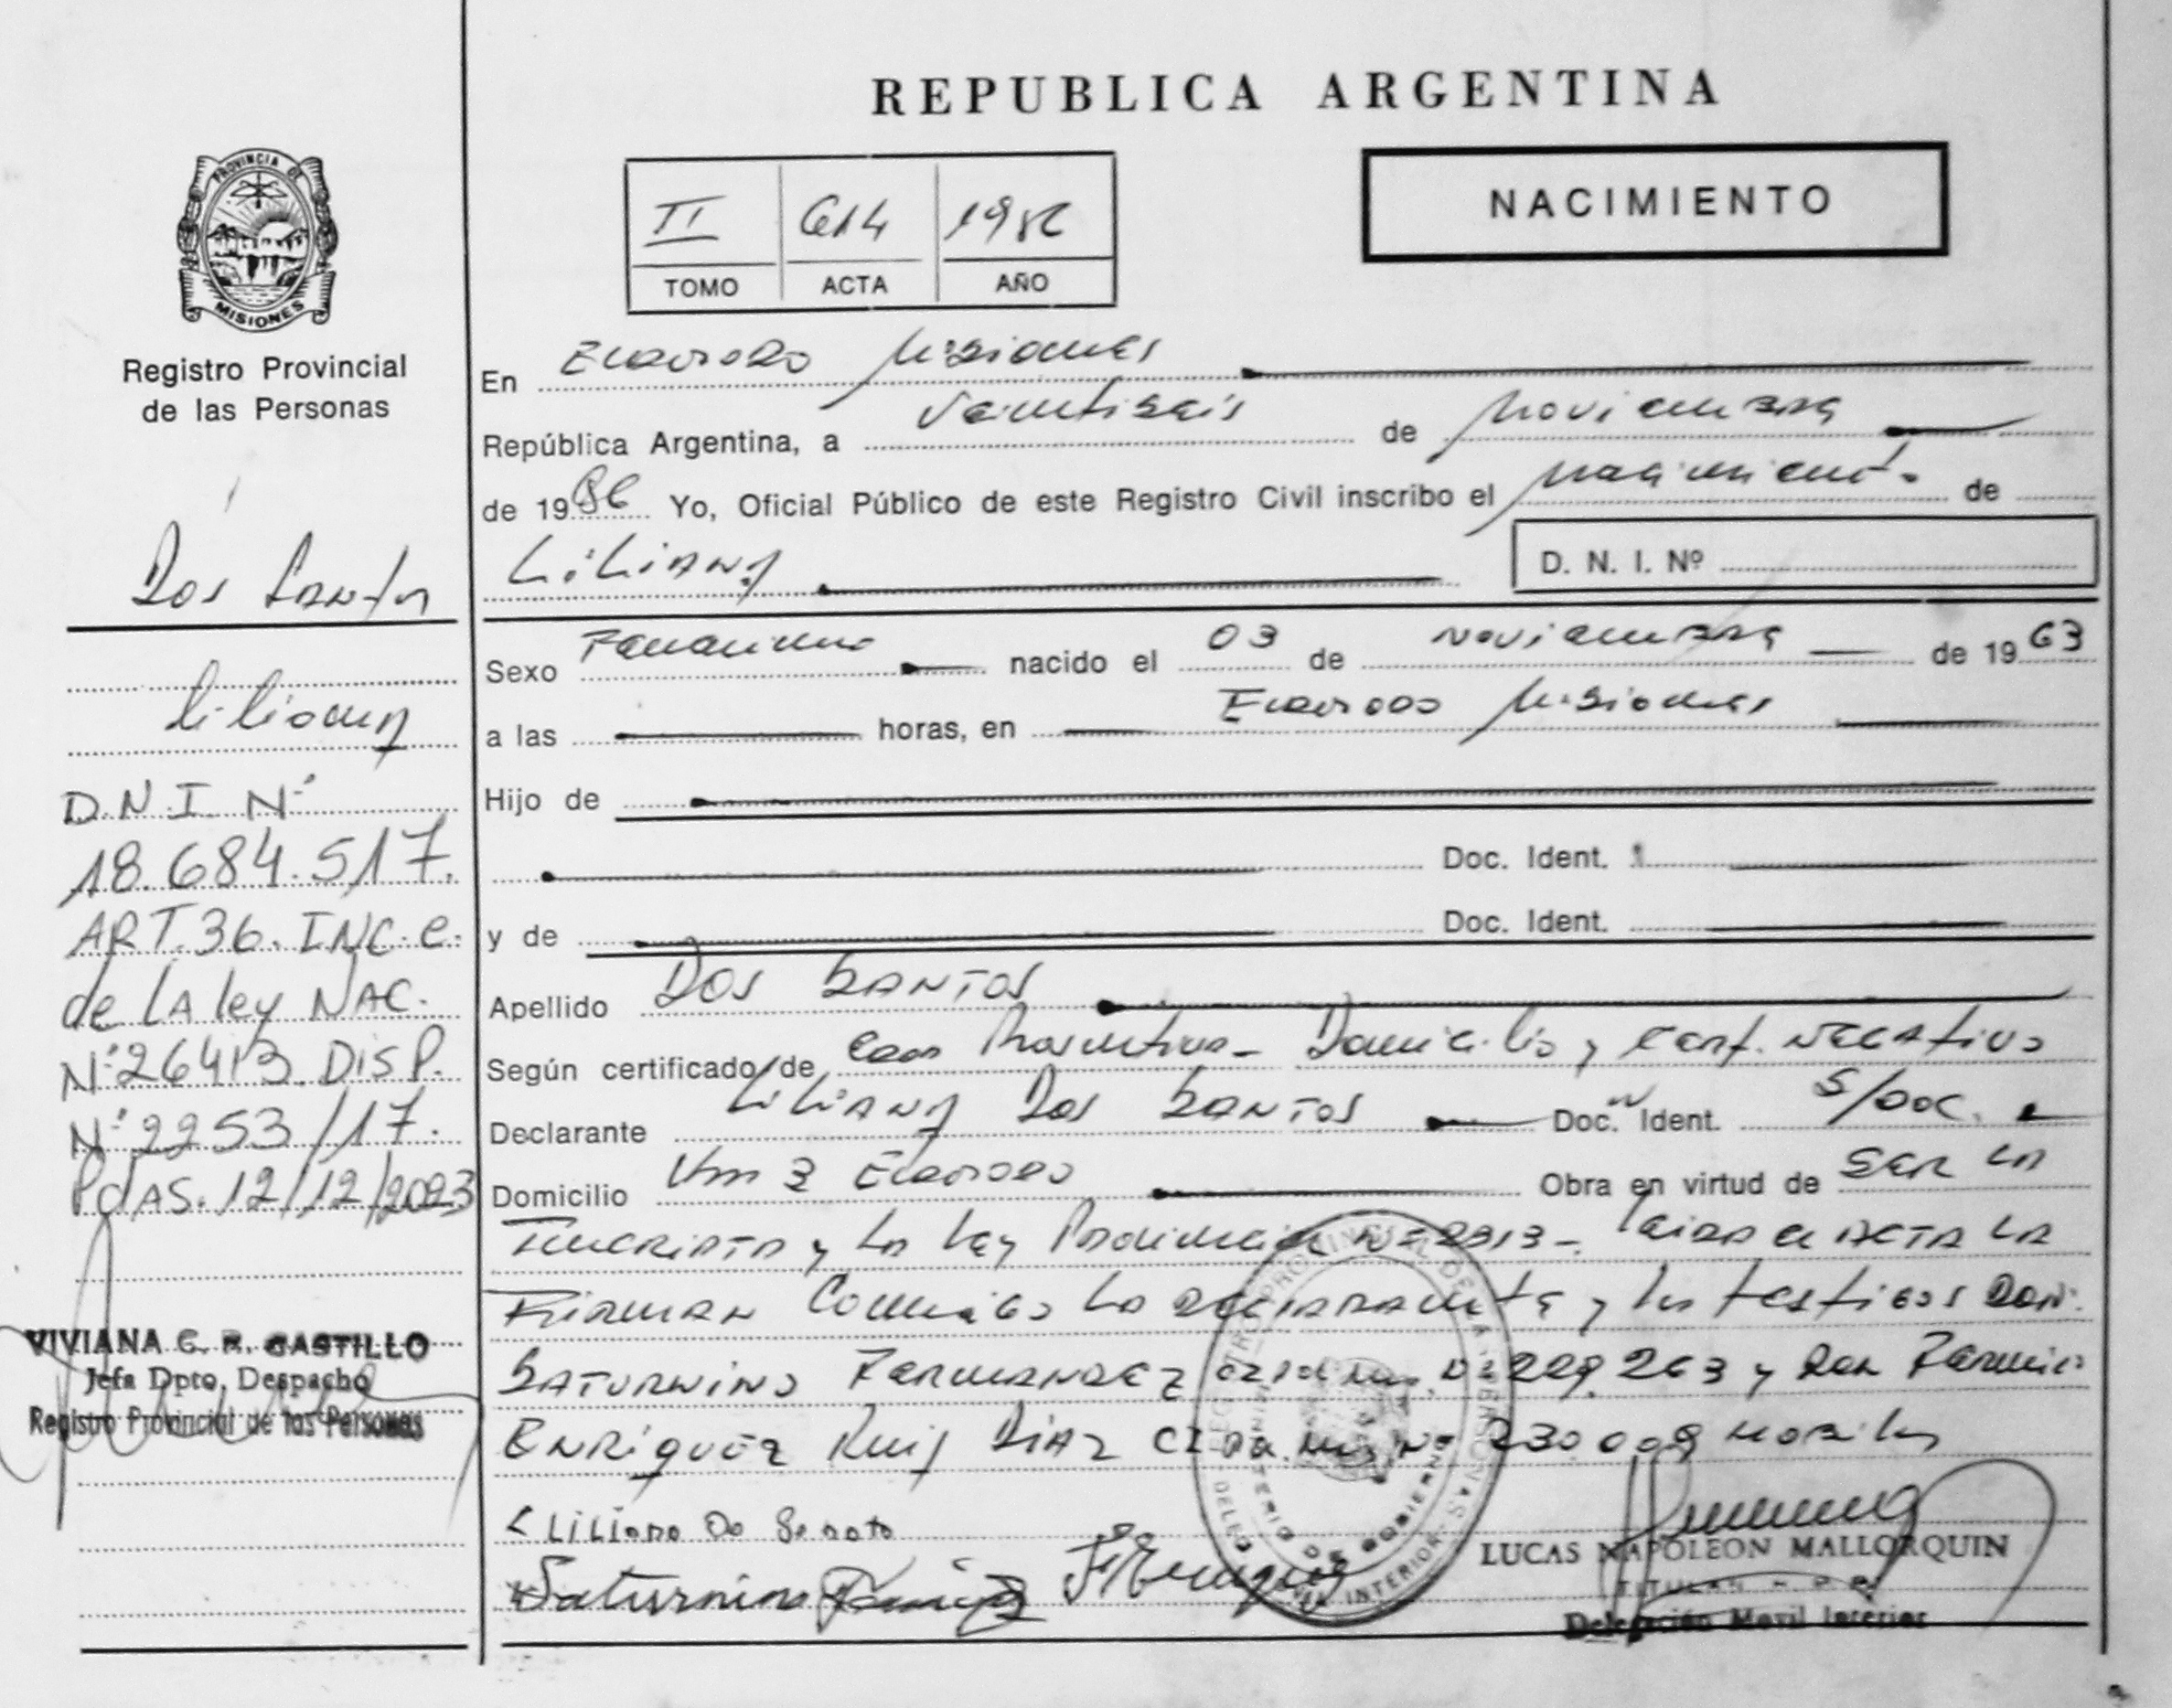 REPUBLICA ARGENTINA
NACIMIENTO
II 614 1986
TOMO ACTA AÑO
PROVINCIA DE
MISIONES
Registro Provincial
de las Personas
Dos Santos
Liliana
D.N.I. Nº
18.684.517.
ART.36. INC.e.
de LA ley NAC.
Nº26413. DISP.
Nº2253/17.
PdAS. 12/12/2023
VIVIANA C. R. CASTILLO
Jefa Dpto. Despacho
Registro Provincial de las Personas
En Eldorado Misiones
República Argentina, a Veintiseis de Noviembre
de 1986 Yo, Oficial Público de este Registro Civil inscribo el nacimiento de
Liliana
D. N. I. Nº
Sexo Femenino nacido el 03 de Noviembre de 1963
a las horas, en Eldorado Misiones
Hijo de
Doc. Ident.
y de Doc. Ident.
Apellido DOS SANTOS
Según certificado de Domicilio y Cert. Negativo
Declarante Liliana Dos Santos Doc. Ident. S/DOC.
Domicilio Km 3 Eldorado Obra en virtud de SER LA
Inscripta y la Ley Provincial Nº 2313 - Leida el ACTA LA
Firman Conmigo la declarante y los testigos Don
SATURNINO FERNANDEZ Nº 229.263 y Don Fermin
ENRIQUEZ Ruiz DIAZ Nº 230.008
Liliana Do Sanoto
Saturnino
LUCAS NAPOLEON MALLORQUIN
TITULAR
Delegación Movil Interior